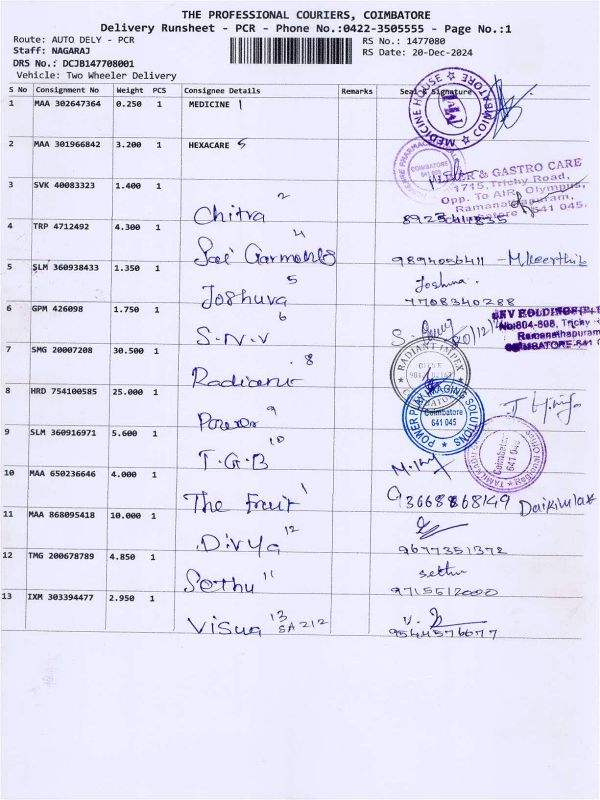 THE PROFESSIONAL COURIERS, COIMBATORE
Delivery Runsheet - PCR - Phone No.:0422-3505555 - Page No.:1
Route: AUTO DELY - PCR
RS No.: 1477080
Staff: NAGARAJ
RS Date: 20-Dec-2024
DRS No.: DCJB147708001
Vehicle: Two Wheeler Delivery
S No Consignment No Weight PCS Consignee Details Remarks Seal & Signature
1 MAA 302647364 0.250 1 MEDICINE 1
MEDICINE HOUSE COIMBATORE
2 MAA 301966842 3.200 1 HEXACARE 5
COIMBATORE
& GASTRO CARE
1715, Trichy Road,
Opp. To AIR, Olympus,
Ramanathapuram,
641 045.
3 SVK 40083323 1.400 1
Chitra 2
4 TRP 4712492 4.300 1
Sai Garments 4
9894056411 - M.keerthi
5 SLM 360938433 1.350 1
Joshuva 5
Joshuva.
7708340288
6 GPM 426098 1.750 1
S.N.V 6
20/12/24
SNV HOLDINGS
No:804-808, Trichy
Ramanathapuram
COIMBATORE-641 0
7 SMG 20007208 30.500 1
Radiant 8
RADIANT IMPEX
8 HRD 754100585 25.000 1
Power 9
POWER PLAY IMAGING SOLUTIONS
Coimbatore
641 045
9 SLM 360916971 5.600 1
T.G.B 10
Coimbatore
641 045
10 MAA 650236646 4.000 1
The Fruit 1
11 MAA 868095418 10.000 1
Divya 12
9677351372
12 TMG 200678789 4.850 1
Sethu 11
sethu
9715512000
13 IXM 303394477 2.950 1
Visua 13
SA212
9544576677